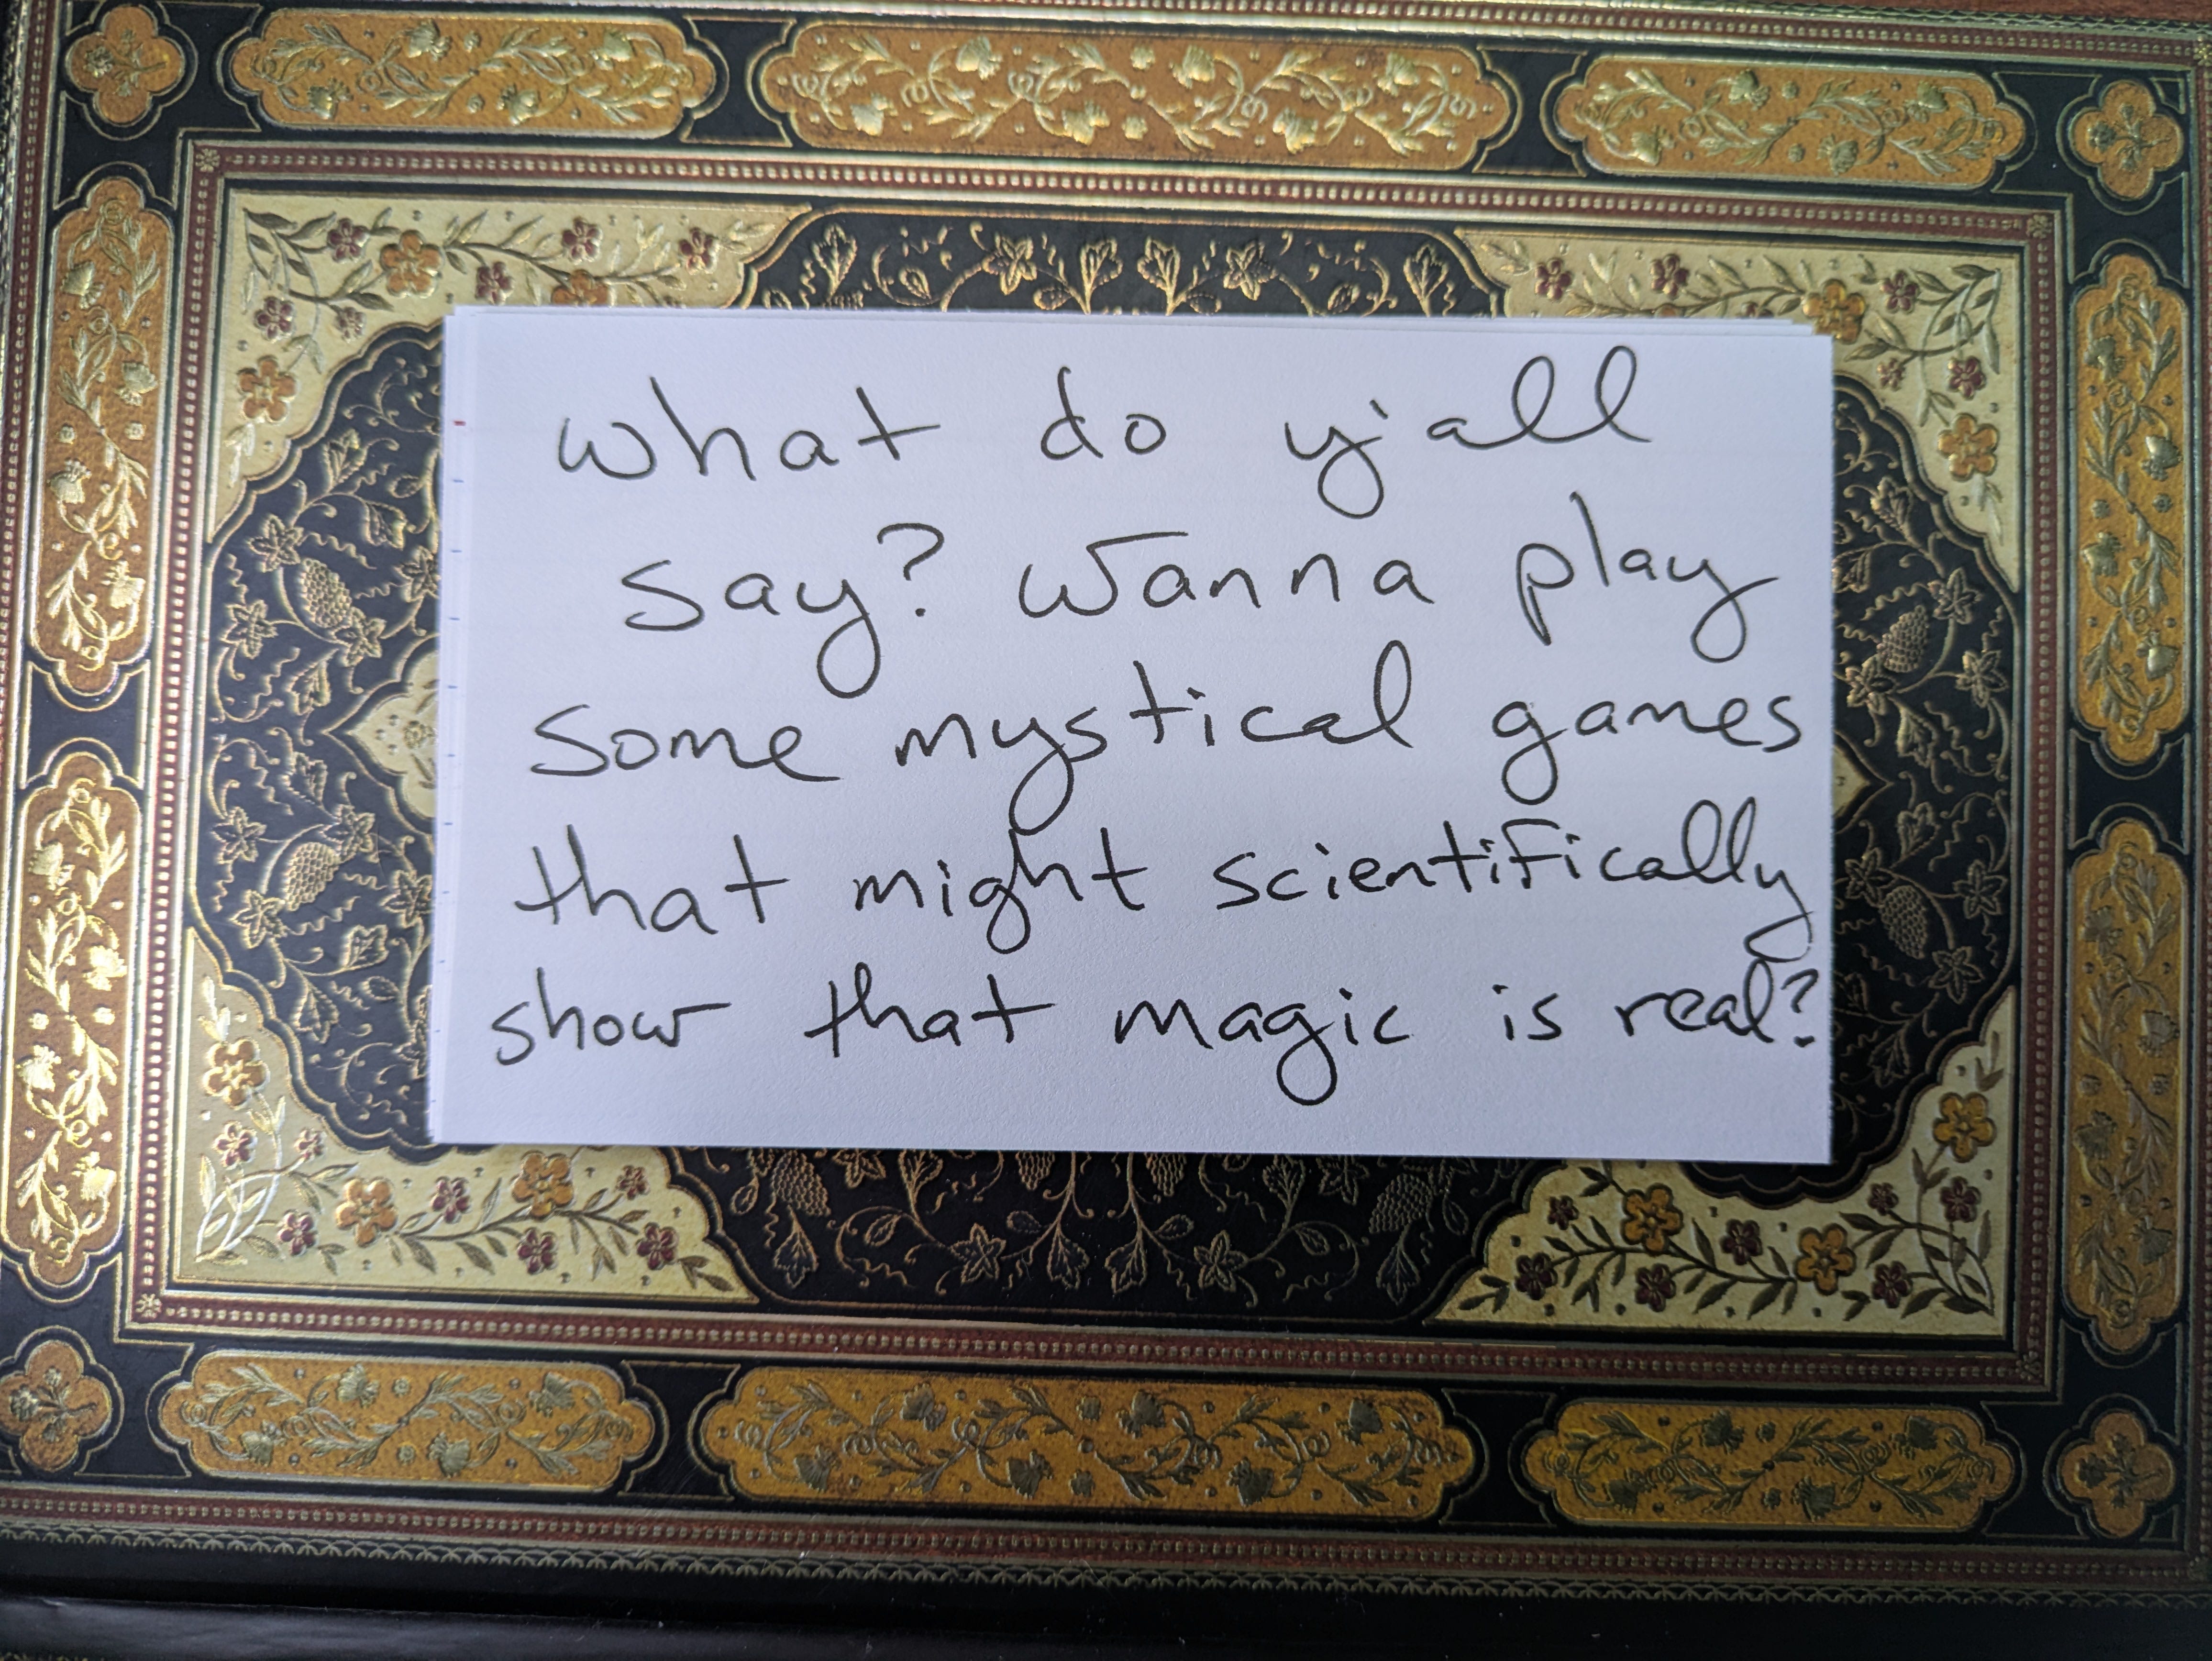 what do y'all
say? Wanna play
some mystical games
that might scientifically
show that magic is real?